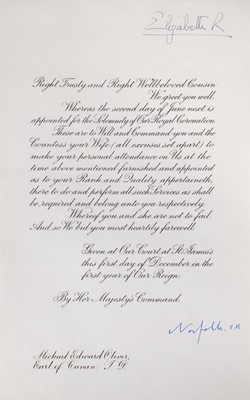 Elizabeth R
Right Trusty and Right Wellbeloved Cousin
We greet you well.
Whereas the second day of June next is
appointed for the Solemnity of Our Royal Coronation
These are to Will and Command you and the
Countess your Wife (all excuses set apart) to
make your personal attendance on Us at the
time above mentioned furnished and appointed
as to your Rank and Quality appertaineth,
there to do and perform all such Services as shall
be required and belong unto you respectively.
Whereof you and she are not to fail.
And so We bid you most heartily farewell.
Given at Our Court at St. James's
this first day of December in the
first year of Our Reign.
By Her Majesty's Command.
Norfolk. E.M.
Michael Edward Oliver,
Earl of Cavan, T D